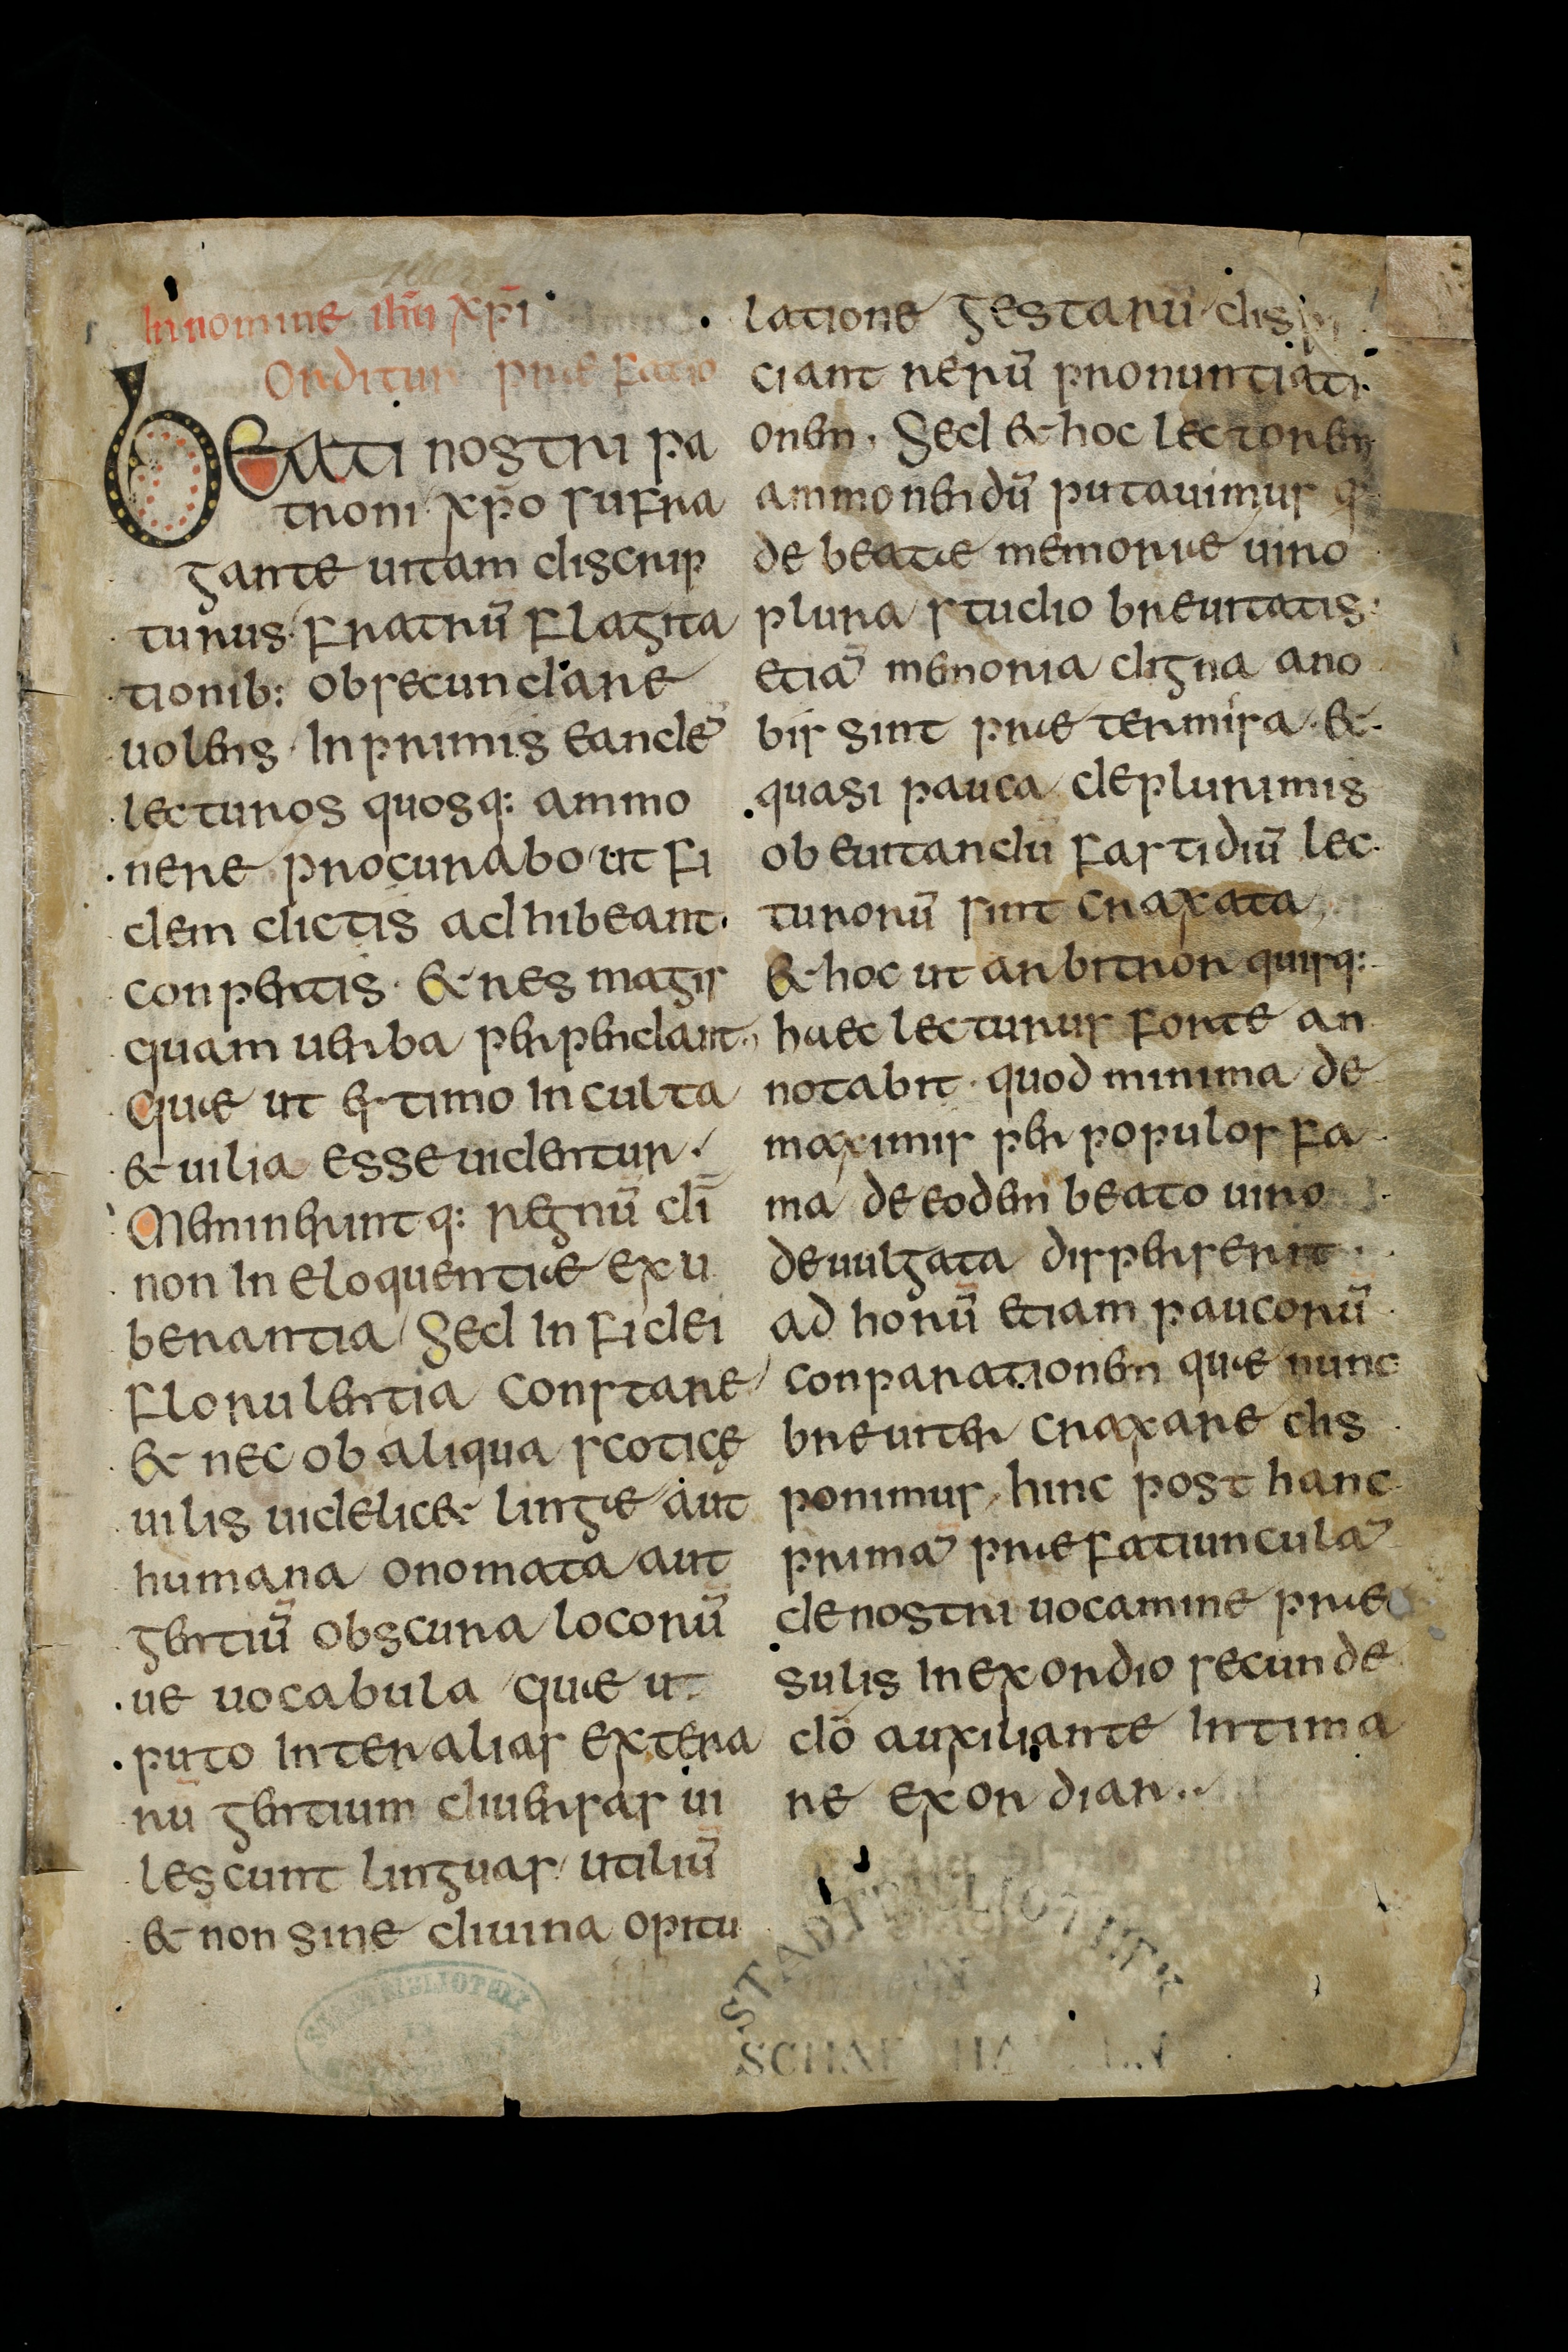 In nomine ihu xpi
Orditur praefatio
Beati nostri pa
troni xpo sufra
gante uitam discrip
turus fratrū flagita
tionib; obsecundare
uolens Inprimis eandē
lecturos quosq; ammo
nere procurabo ut fi
dem dictis adhibeant
conpertis & res magis
quam uerba perpendant
quae ut estimo Inculta
& uilia esse uidentur
Meminerintq; regnū dī
non In eloquentiae exu
berantia Sed In fidei
florulentia constare
& nec ob aliqua scoticę
uilis uidelicet lingae aut
humana onomata aut
gentiū obscura locorū
ue uocabula quae ut
puto Inter alias exterа
rū gentium diuersas ui
lescunt linguas utiliū
& non sine diuina opitu
latione gestarū dispi
ciant rerū pronuntiati
onem. Sed & hoc lectorem
ammonendū putauimus
de beatae memoriae uiro
plura studio breuitatis
etiā memoria digna ano
bis sint praetermisa &
quasi pauca deplurimis
ob euitandū fastidiū lec
turorū sint craxata
& hoc ut arbitror quisq;
haec lecturus forte an
notabit quod minima de
maximis per populos fa
ma de eodem beato uiro
deuulgata disperserit
ad horū etiam paucorū
conparationem quae nunc
breuiter craxare dis
ponimus hinc post hanc
primā praefatiunculā
denostri uocamine prae
sulis Inexordio secunde
dō auxiliante Intima
re exordiar
STADTBIBLIOTHEK
STADTBIBLIOTHEK
SCHAFFHAUSEN